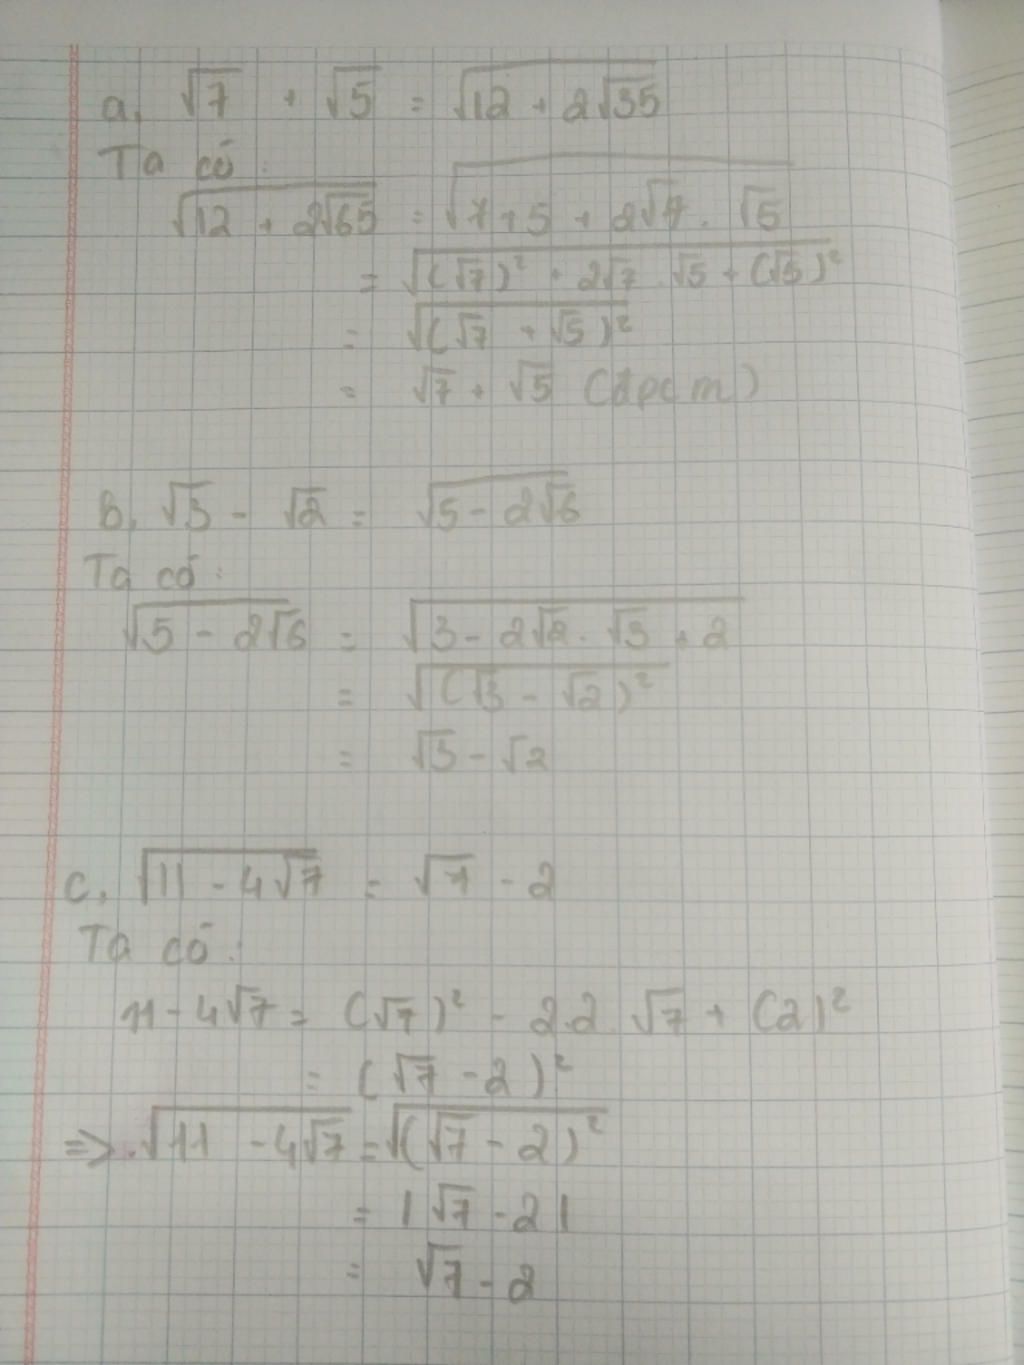 a, √7 + √5 = √(12 + 2√35)
Ta có:
√(12 + 2√65) = √(7 + 5 + 2√7 . √5)
= √((√7)² + 2√7 . √5 + (√5)²)
= √((√7 + √5)²)
= √7 + √5 (đpcm)
b, √3 - √2 = √(5 - 2√6)
Ta có:
√(5 - 2√6) = √(3 - 2√2 . √3 + 2)
= √((√3 - √2)²)
= √3 - √2
c, √(11 - 4√7) = √7 - 2
Ta có:
11 - 4√7 = (√7)² - 2.2 √7 + (2)²
= (√7 - 2)²
=> √(11 - 4√7) = √((√7 - 2)²)
= |√7 - 2|
= √7 - 2